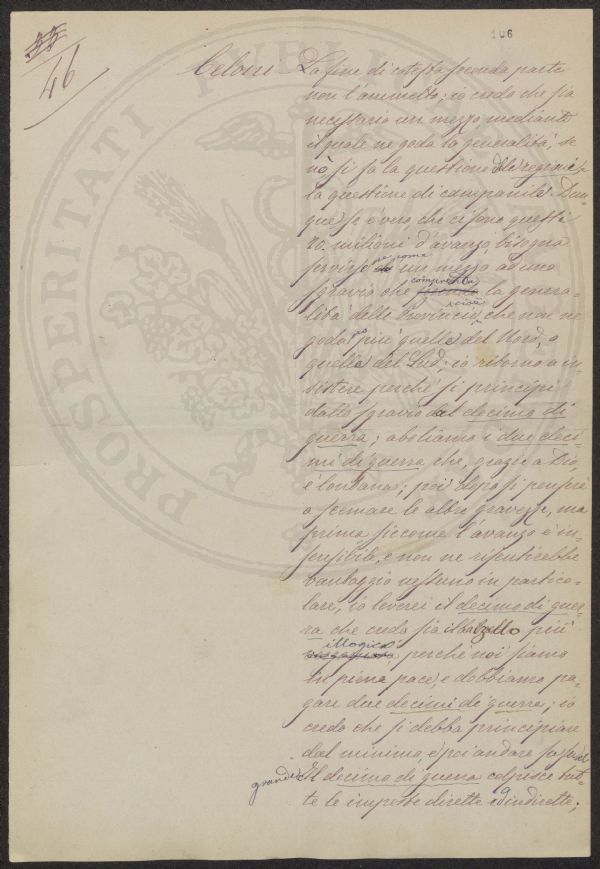 106
46
PROSPERITATI PUBLI
Celoni La fine di cotesta seconda parte
non l'ammetto; io credo che sia
necessario un mezzo mediante
il quale ne goda la generalità, se
nò si fa la questione delle regioni e
la questione di campanile. Dun-
que se è vero che ci sono questi
20. milioni d'avanzo, bisogna
servirsene come un mezzo ad uno
sgravio che comprenda la genera-
lità delle Provincie, che non ne
godano più quelle del Nord, o
quelle del Sud; io ritorno a in-
sistere perché si principi
dallo sgravio del decimo di
guerra; aboliamo i due deci-
mi di guerra che, grazie a Dio,
è lontana; poi dopo si penserà
a scemare le altre gravezze, ma
prima siccome l'avanzo è in-
sensibile, e non ne risentirebbe
vantaggio nessuno in partico-
lare, io leverei il decimo di guer-
ra che credo sia il balzello più
illogico perché noi siamo
in piena pace, e dobbiamo pa-
gare due decimi di guerra; io
credo che si debba principiare
dal minimo, e poi andare
grandi. Il decimo di guerra colpisce tut-
te le imposte dirette ed indirette;